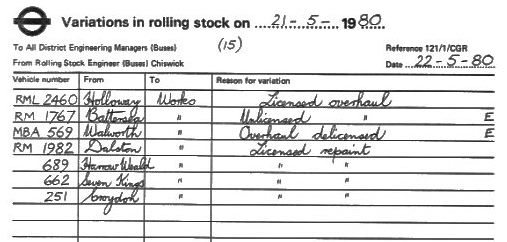 Variations in rolling stock on 21-5-1980.
To All District Engineering Managers (Buses) (15) Reference 121/1/CGR
From Rolling Stock Engineer (Buses) Chiswick Date 22-5-80
Vehicle number From To Reason for variation
RML 2460 Holloway Works Licensed overhaul
RM 1767 Battersea " Unlicensed " E
MBA 569 Walworth " Overhaul delicensed E
RM 1982 Dalston " Licensed repaint
689 Harrow Weald " " "
662 Seven Kings " " "
251 Croydon " " "